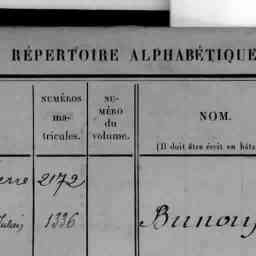 RÉPERTOIRE ALPHABÉTIQUE
NUMÉROS
ma-
tricules.
NU-
MÉRO
du
volume.
NOM.
(Il doit être écrit en bât
erre 2172
1336 Bunou